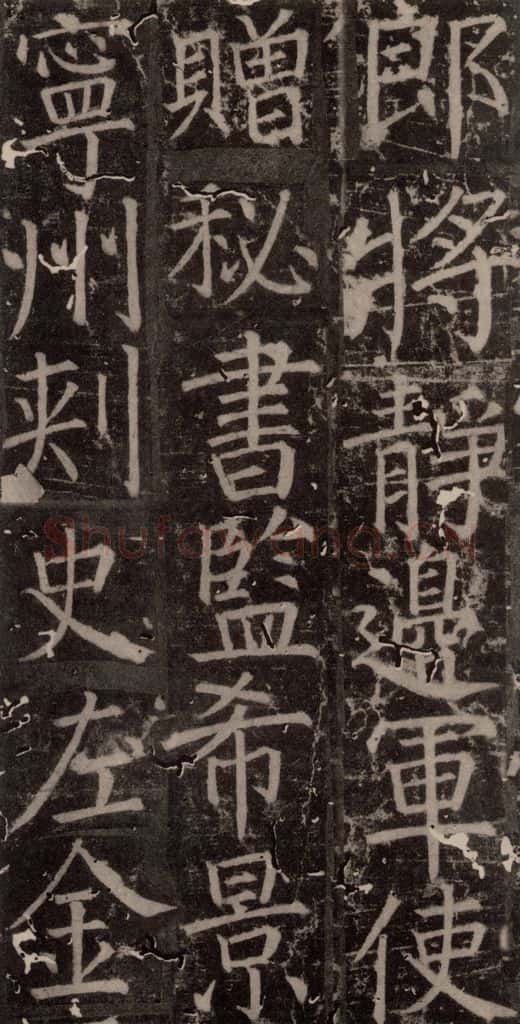 郎將靜邊軍使
贈秘書監希景
寧州刾史左金
Shufawang.CN